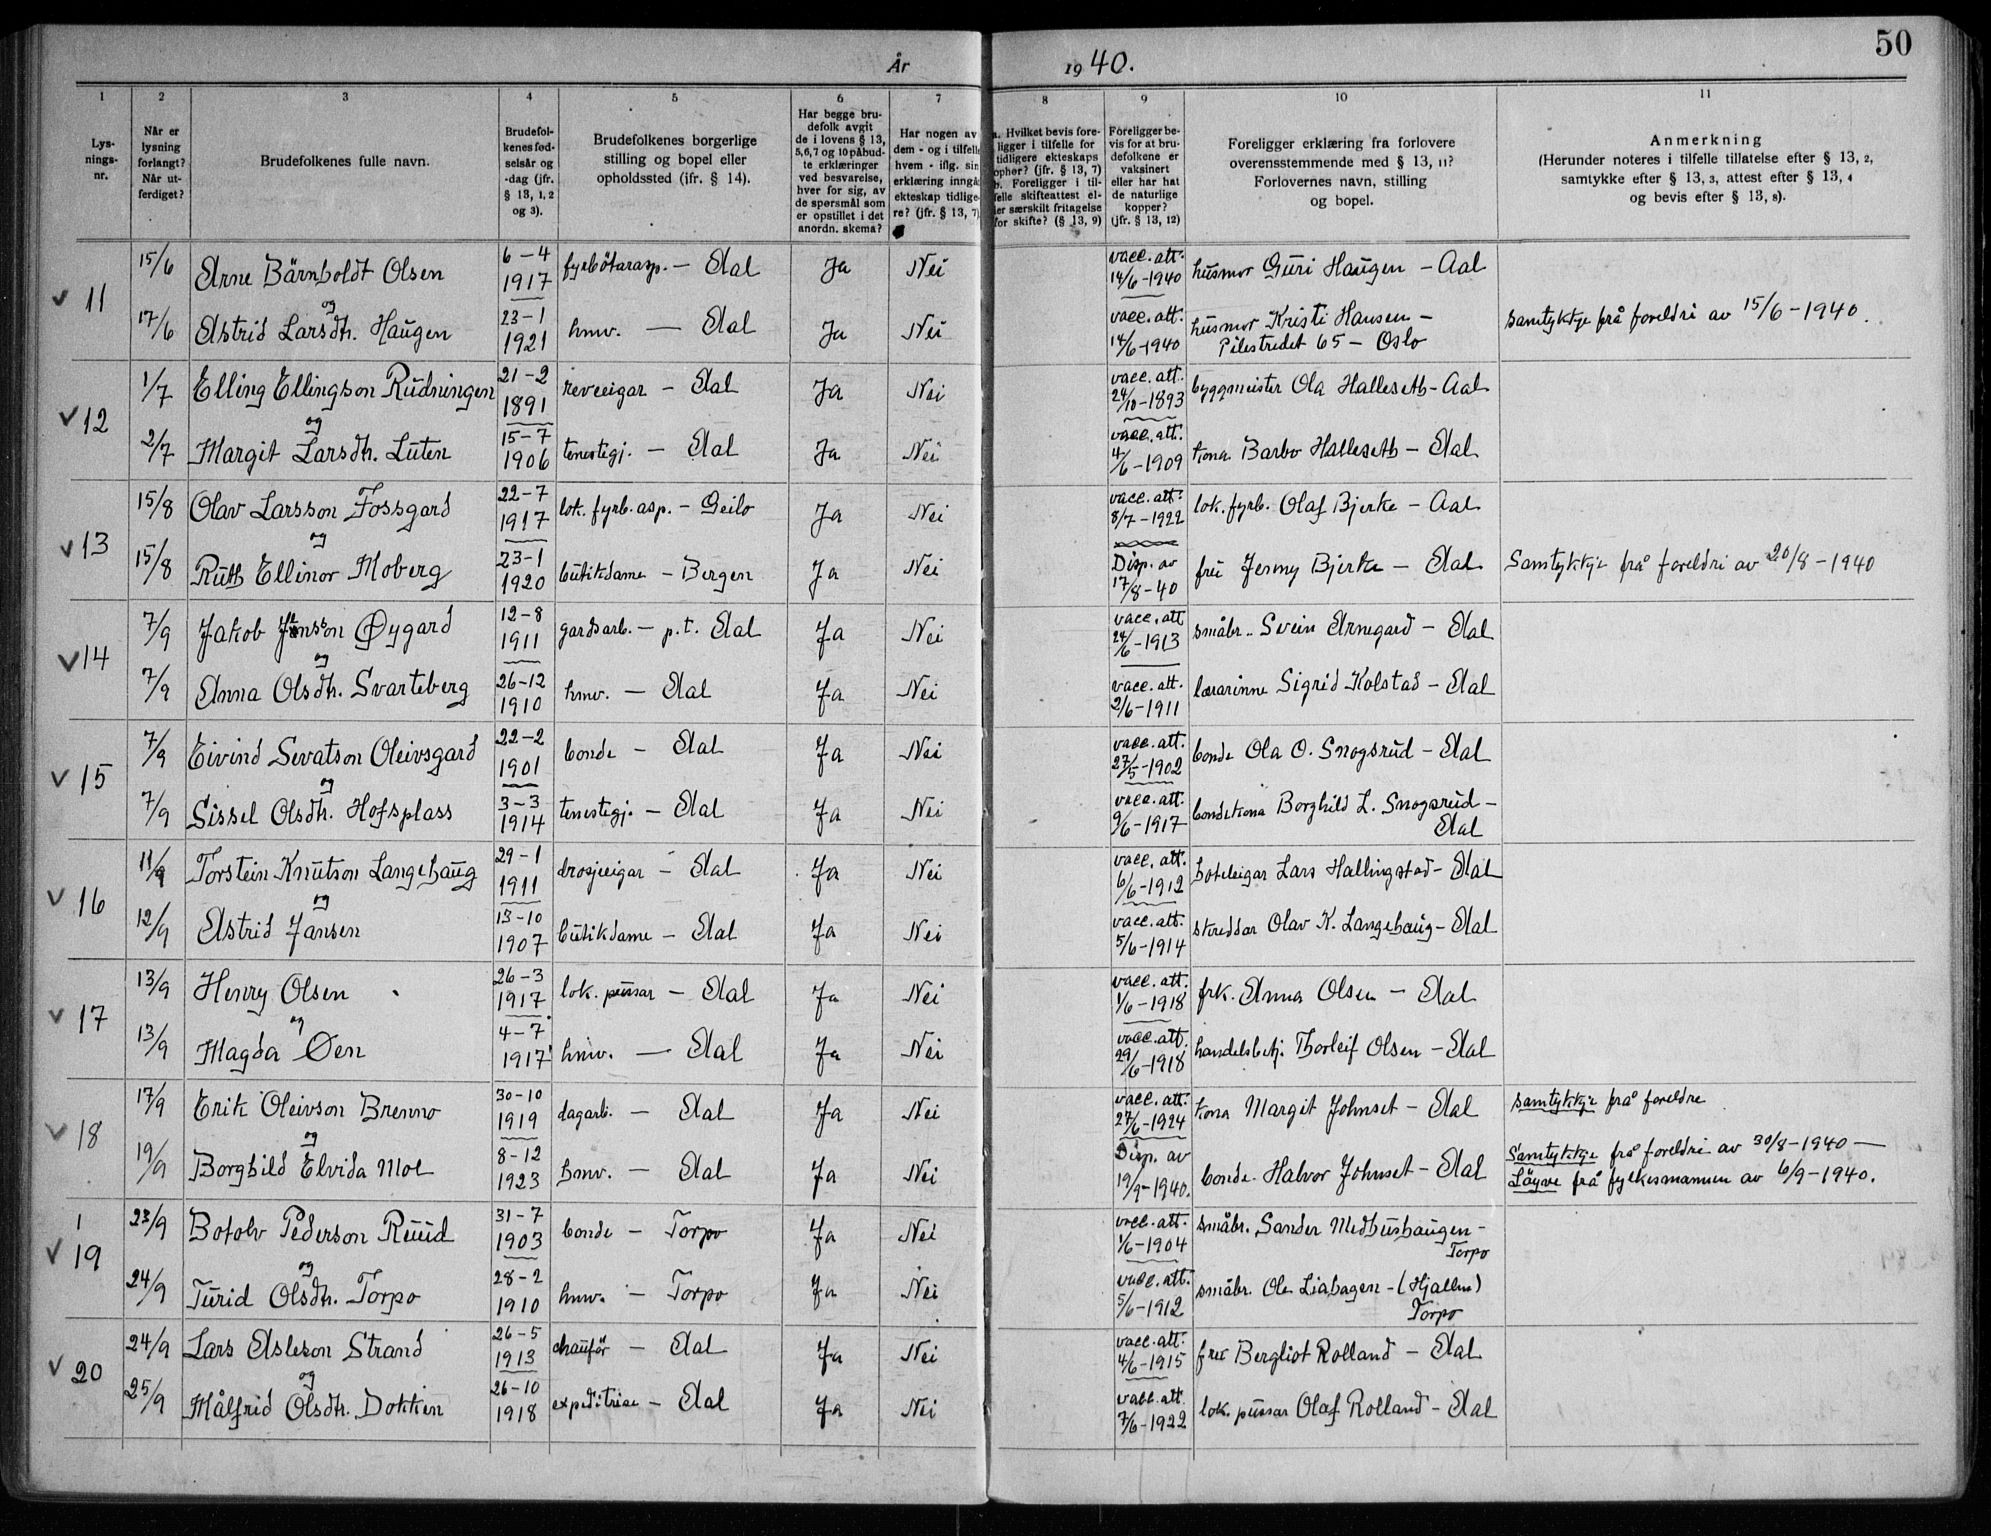 50
År 1940.
1 2 3 4 5 6 7 8 9 10 11
Lysningsnr.
Når er lysning forlangt? Når utferdiget?
Brudefolkenes fulle navn.
Brudefolkenes fødselsår og -dag (jfr. § 13, 1, 2 og 3).
Brudefolkenes borgerlige stilling og bopel eller opholdssted (jfr. § 14).
Har begge brudefolk avgit de i lovens § 13, 5, 6, 7 og 10 påbudte erklæringer ved besvarelse, hver for sig, av de spørsmål som er opstillet i det anordn. skema?
Har nogen av dem - og i tilfelle hvem - iflg. sin erklæring inngå ekteskap tidligere? (jfr. § 13, 7)
a. Hvilket bevis foreligger i tilfelle for tidligere ekteskaps opher? (jfr. § 13, 7) b. Foreligger i tilfelle skifteattest eller særskilt fritagelse for skifte? (§ 13, 9)
Foreligger bevis for at brudefolkene er vaksinert eller har hat de naturlige kopper? (jfr. § 13, 12)
Foreligger erklæring fra forlovere overensstemmende med § 13, 11? Forlovernes navn, stilling og bopel.
Anmerkning (Herunder noteres i tilfelle tillatelse efter § 13, 2, samtykke efter § 13, 3, attest efter § 13, 4 og bevis efter § 13, 8).
11 15/6 Arne Bärnholdt Olsen 6-4 1917 fyrbötarasp. - Aal Ja Nei vacc. att. 14/6-1940 husmor Guri Haugen - Aal
og
17/6 Astrid Larsdh. Haugen 23-1 1921 hmv. - Aal Ja Nei vacc. att. 14/6-1940 husmor Kristi Hansen - Pilestredet 65 - Oslo samtykkje frå foreldri av 15/6-1940.
12 1/7 Elling Ellingson Rudningen 21-2 1891 reveeigar - Aal Ja Nei vacc. att. 24/10-1893 byggmeister Ola Halleseth - Aal
og
2/7 Margit Larsdh. Luten 15-7 1906 tenestegj. - Aal Ja Nei vacc. att. 4/6-1909 kona Barbo Halleseth - Aal
13 15/8 Olav Larsson Fossgard 22-7 1917 lok. fyrb. asp. - Geilo Ja Nei vacc. att. 8/7-1922 lok. fyrb. Olaf Bjerke - Aal
og
15/8 Ruth Ellinor Moberg 23-1 1920 butikdame - Bergen Ja Nei Disp. av 17/8-40 fru Jenny Bjerke - Aal Samtykkje frå foreldri av 20/8-1940
14 7/9 Jakob Jonsson Øygard 12-8 1911 gardsarb. - p.t. Aal Ja Nei vacc. att 24/6-1913 småbr. Svein Arnegard - Aal
og
7/9 Anna Olsdh. Svarteberg 26-12 1910 hmv. - Aal Ja Nei vacc. att. 2/6-1911 lærarinne Sigrid Kolstad - Aal
15 7/9 Eivind Sevatson Oleivsgard 22-2 1901 bonde - Aal Ja Nei vacc. att. 27/5-1902 bonde Ola O. Snogsrud - Aal
og
7/9 Sissel Olsdh. Hofsplass 3-3 1914 tenestegj. - Aal Ja Nei vacc. att. 9/6-1917 bondekona Borghild L. Snogsrud - Aal
16 11/9 Torstein Knutson Langehaug 29-1 1911 drosjeeigar - Aal Ja Nei vacc. att. 6/6-1912 hoteleigar Lars Hallingstad - Aal
og
12/9 Astrid Jansen 13-10 1907 butikdame - Aal Ja Nei vacc. att. 5/6-1914 skreddar Olav K. Langehaug - Aal
17 13/9 Henry Olsen 26-3 1917 lok. pussar - Aal Ja Nei vacc. att. 1/6-1918 frk. Anna Olsen - Aal
og
13/9 Magda Øen 4-7 1917 hmv. - Aal Ja Nei vacc. att. 29/6-1918 handelsbetj. Thorleif Olsen - Aal
18 17/9 Erik Oleivson Brenno 30-10 1919 dagarb. - Aal Ja Nei vacc. att. 27/6-1924 kona Margit Johnset - Aal samtykkje frå foreldre
og
19/9 Borghild Elvida Moe 8-12 1923 hmv. - Aal Ja Nei Disp. av 19/9-1940. bonde Halvor Johnset - Aal Samtykkje frå foreldri av 30/8-1940 - Løyve frå fylkesmannen av 6/9-1940.
19 23/9 Botolv Pederson Ruud 31-7 1903 bonde - Torpo Ja Nei vacc. att. 1/6-1904 småbr. Sander Medhushaugen - Torpo
og
24/9 Turid Olsdh. Torpo 28-2 1910 hmv. - Torpo Ja Nei vacc. att. 5/6-1912 småbr. Ole Liahagen - (Hjallen) Torpo
20 24/9 Lars Asleson Strand 26-5 1913 chauför - Aal Ja Nei vacc. att. 4/6-1915 fru Bergliot Rolland - Aal
og
25/9 Målfrid Olsdh. Dokken 26-10 1918 expeditrise - Aal Ja Nei vacc. att. 7/6-1922 lok. pussar Olaf Rolland - Aal